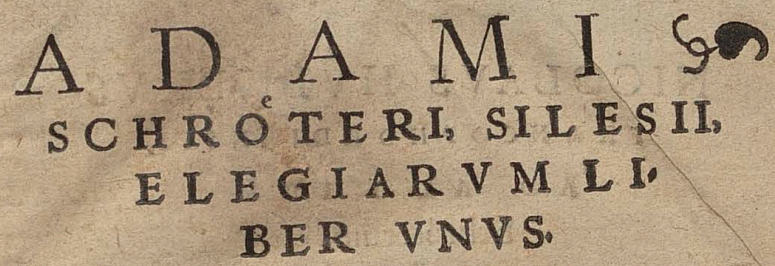 ADAMI
SCHROͤTERI, SILESII,
ELEGIARVM LI-
BER VNVS.